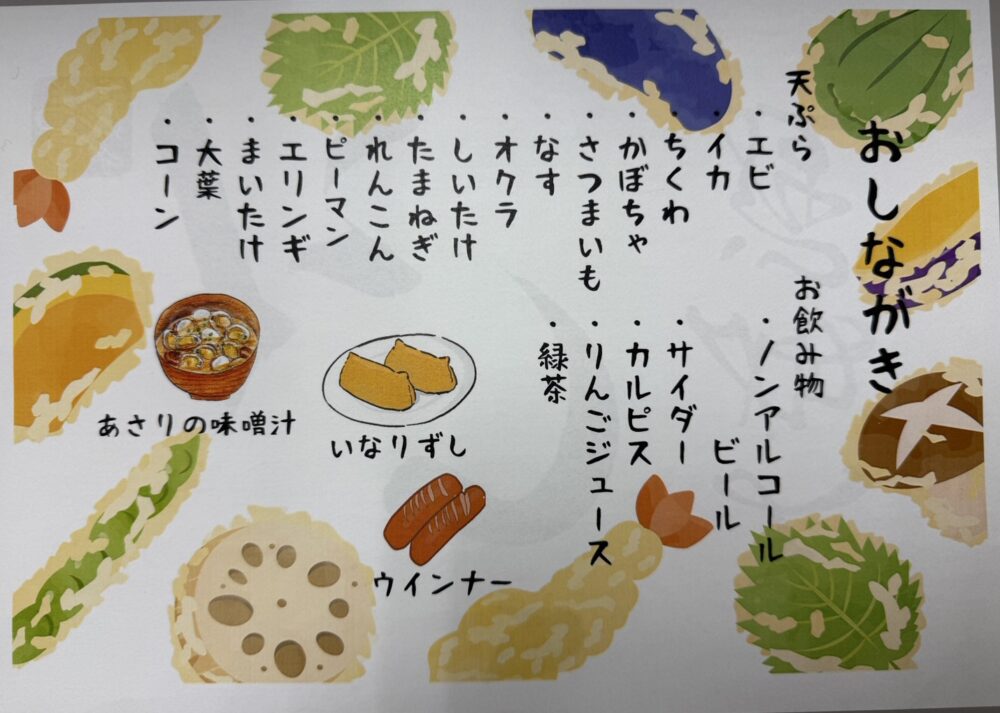 おしながき
天ぷら
・エビ
・イカ
・ちくわ
・かぼちゃ
・さつまいも
・なす
・オクラ
・しいたけ
・たまねぎ
・れんこん
・ピーマン
・エリンギ
・まいたけ
・大葉
・コーン
お飲み物
・ノンアルコール
ビール
・サイダー
・カルピス
・りんごジュース
・緑茶
いなりずし
あさりの味噌汁
ウインナー